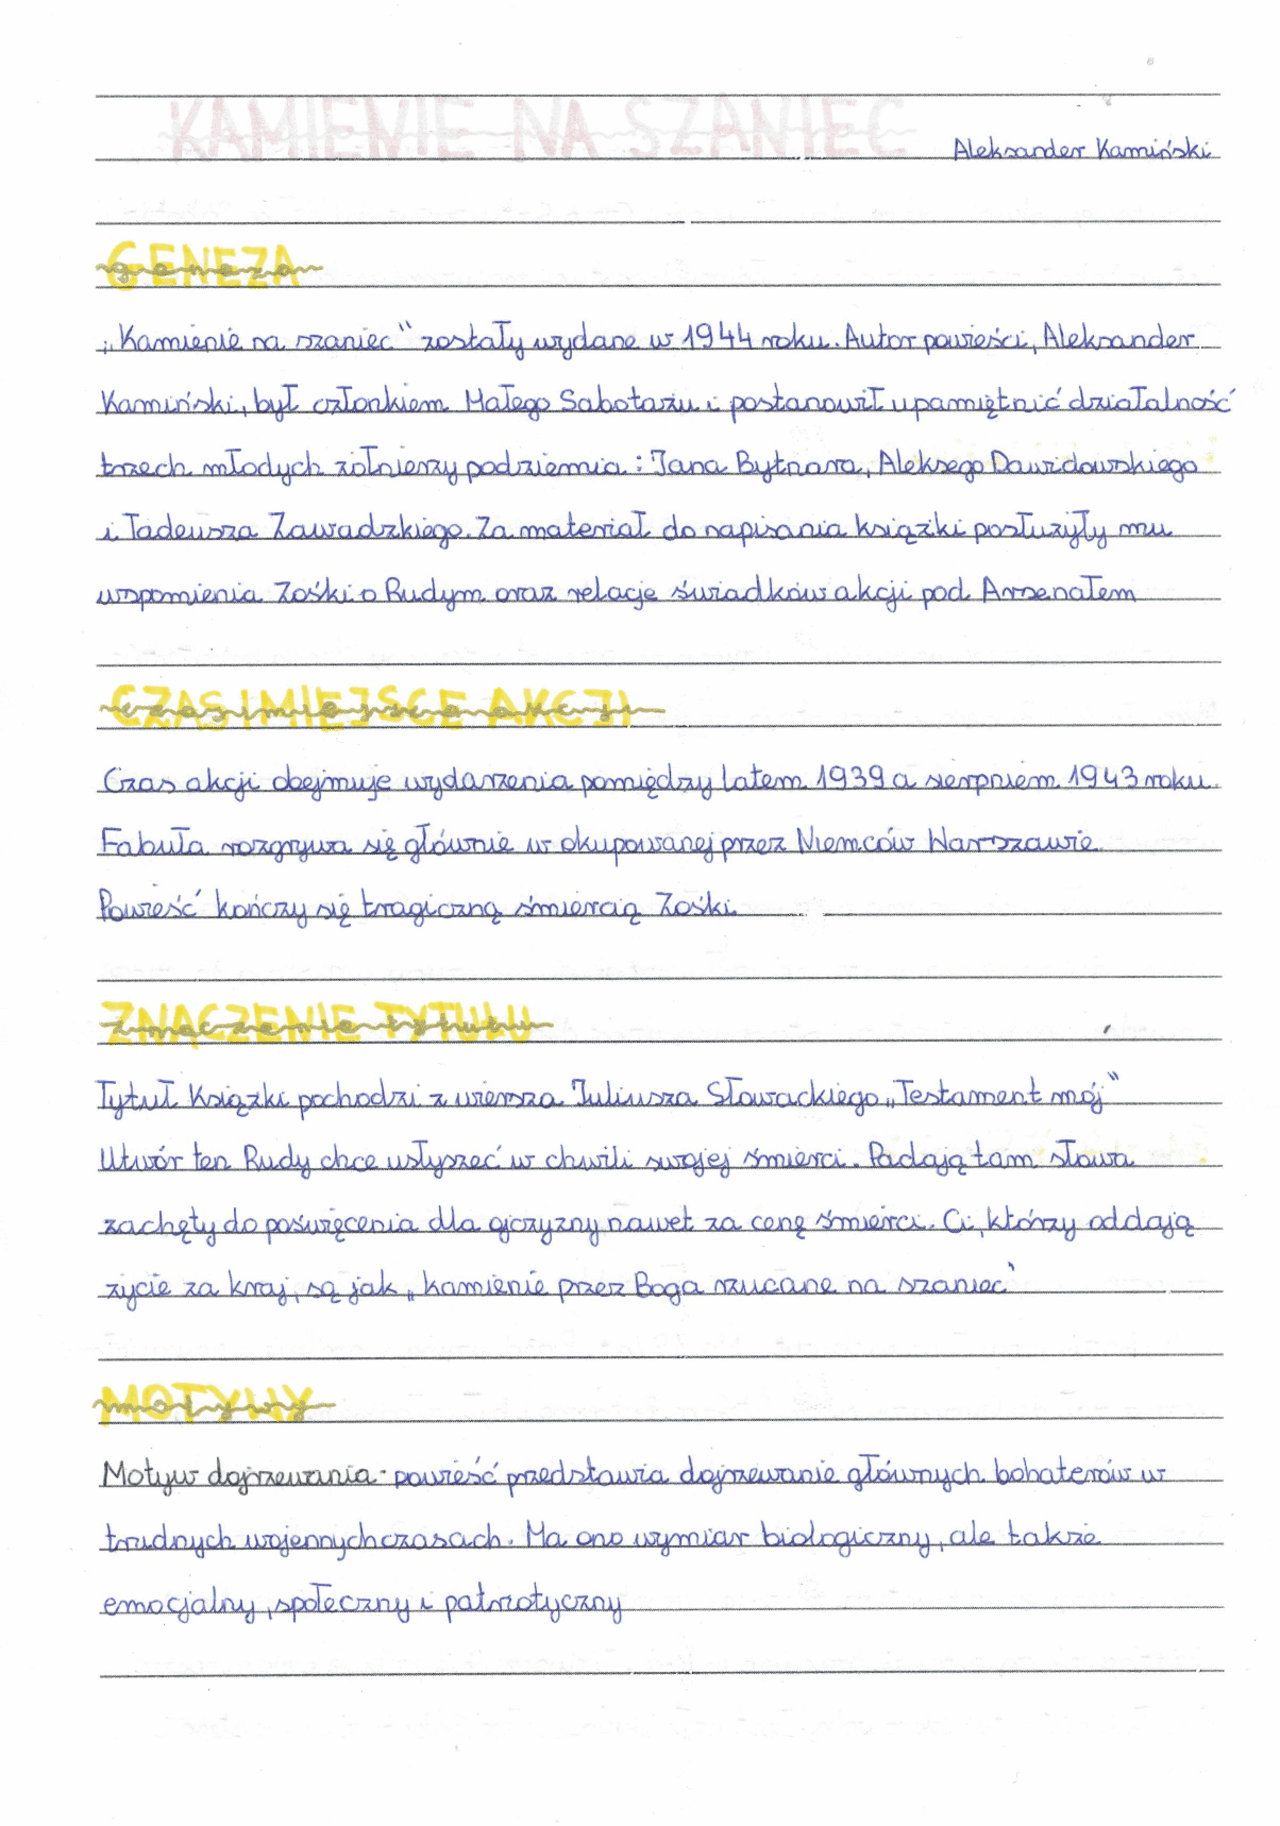 KAMIENIE NA SZANIEC
Aleksander Kamiński
GENEZA
„Kamienie na szaniec" zostały wydane w 1944 roku. Autor powieści, Aleksander
Kamiński, był członkiem Małego Sabotażu i postanowił upamiętnić działalność
trzech młodych żołnierzy podziemia: Jana Bytnara, Aleksego Dawidowskiego
i Tadeusza Zawadzkiego. Za materiał do napisania książki posłużyły mu
wspomienia Zośki o Rudym oraz relacje świadków akcji pod Arsenałem
CZAS I MIEJSCE AKCJI
Czas akcji obejmuje wydarzenia pomiędzy latem 1939 a sierpniem 1943 roku.
Fabuła rozgrywa się głównie w okupowanej przez Niemców Warszawie
Powieść kończy się tragiczną śmiercią Zośki.
ZNACZENIE TYTUŁU
Tytuł Książki pochodzi z wiersza Juliusza Słowackiego „Testament mój"
Utwór ten Rudy chce usłyszeć w chwili swojej śmierci. Padają tam słowa
zachęty do poświęcenia dla ojczyzny nawet za cenę śmierci. Ci, którzy oddają
życie za kraj, są jak „kamienie przez Boga rzucane na szaniec"
MOTYWY
Motyw dojrzewania - powieść przedstawia dojrzewanie głównych bohaterów w
trudnych wojennych czasach. Ma ono wymiar biologiczny, ale także
emocjalny, społeczny i patriotyczny